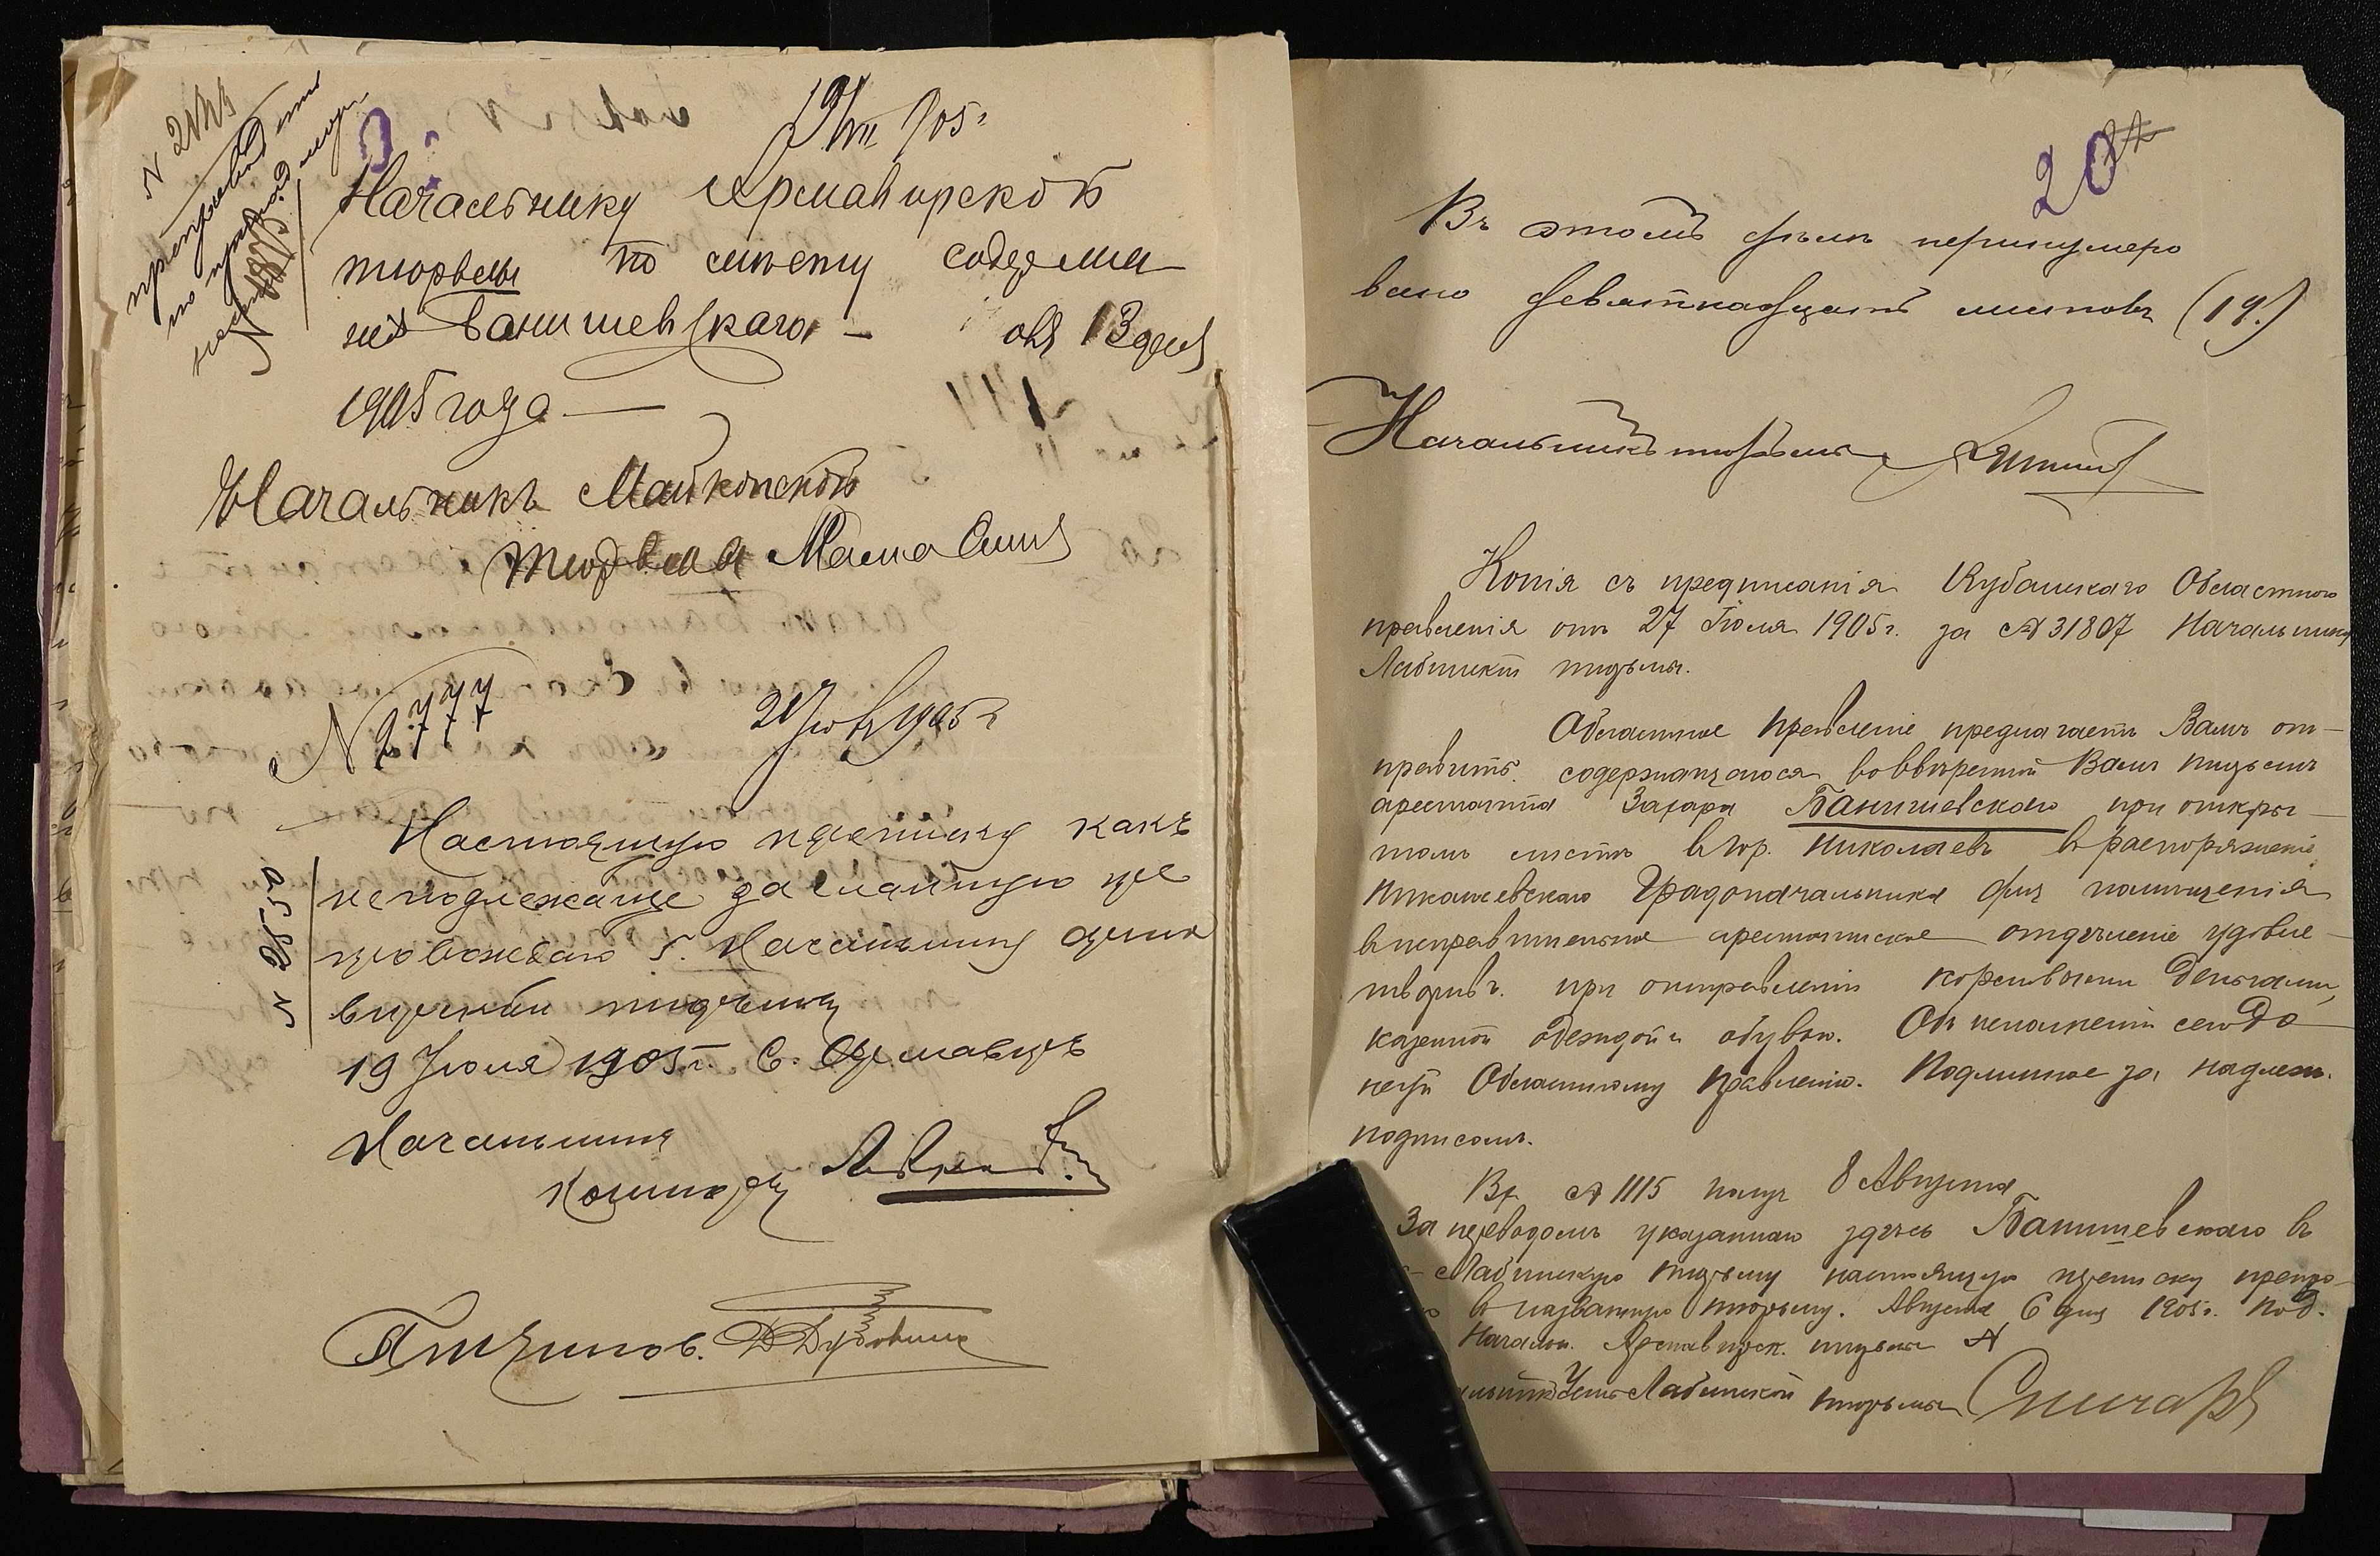 19/VII 905 г
Начальнику Армавирской
тюрьмы по месту содержа
нія Банишевскаго —
1905 года —
Начальникъ Майкопской
тюрьмы
N 2777
1905 г
Настоящую переписку какъ
неподлежаще засланную пре
провождаю Г. Начальнику Арма
вирской тюрьмы
19 Іюля 1905 г. С. Армавиръ
Начальникъ
команды
20
Въ этомъ дѣлѣ перенумеро
вано девятнадцать листовъ (19.)
Начальникъ тюрьмы
Копія съ предписанія Кубанскаго Областного
правленія отъ 27 Іюля 1905 г. за № 31807 Начальнику
Лабинской тюрьмы.
Областное Правленіе предлагаетъ Вамъ от-
править содержащагося во ввѣренной Вамъ тюрьмѣ
арестанта Захара Банишевскаго при откры-
томъ листѣ въ гор. Николаевъ въ распоряженіе
Николаевскаго Градоначальника для помѣщенія
въ исправительное арестантское отдѣленіе удовле-
творивъ при отправленіи кормовыми деньгами,
казенной одеждой и обувью. Объ исполненіи сего до-
нести Областному Правленію. Подлинное за надлеж.
подписомъ.
Вх. № 1115 получ 8 Августа
За переводомъ указаннаго здѣсь Банишевскаго въ
Лабинскую тюрьму настоящую переписку препро-
въ названную тюрьму. Августа 6 дня 1905 г. Под.
Начальн. Армавирск. тюрьмы №
Усть-Лабинской тюрьмы